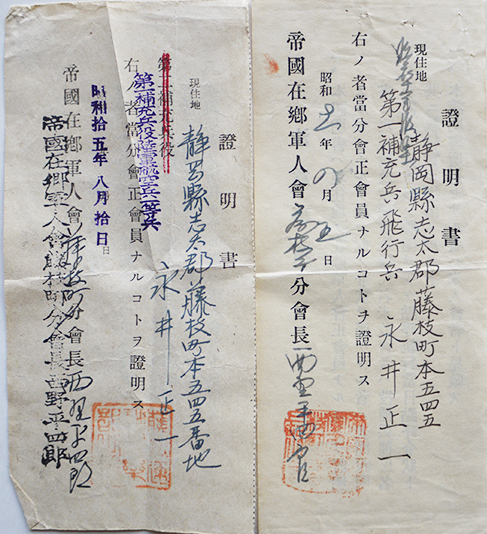 證明書
現住地
静岡縣志太郡藤枝町本五四五
第一補充兵飛行兵 永井正一
右ノ者當分會正會員ナルコトヲ證明ス
昭和 年 月 日
帝國在鄉軍人會 分會長
證明書
現住地
静岡縣志太郡藤枝町本五四五番地
第一補充兵役
第一補充兵役陸軍航空兵
永井正一
右ノ者當分會正會員ナルコトヲ證明ス
昭和拾五年八月拾日
帝國在鄉軍人會藤枝町分會長西野平四郎
帝國在鄉軍人會藤枝町分會長西野平四郎